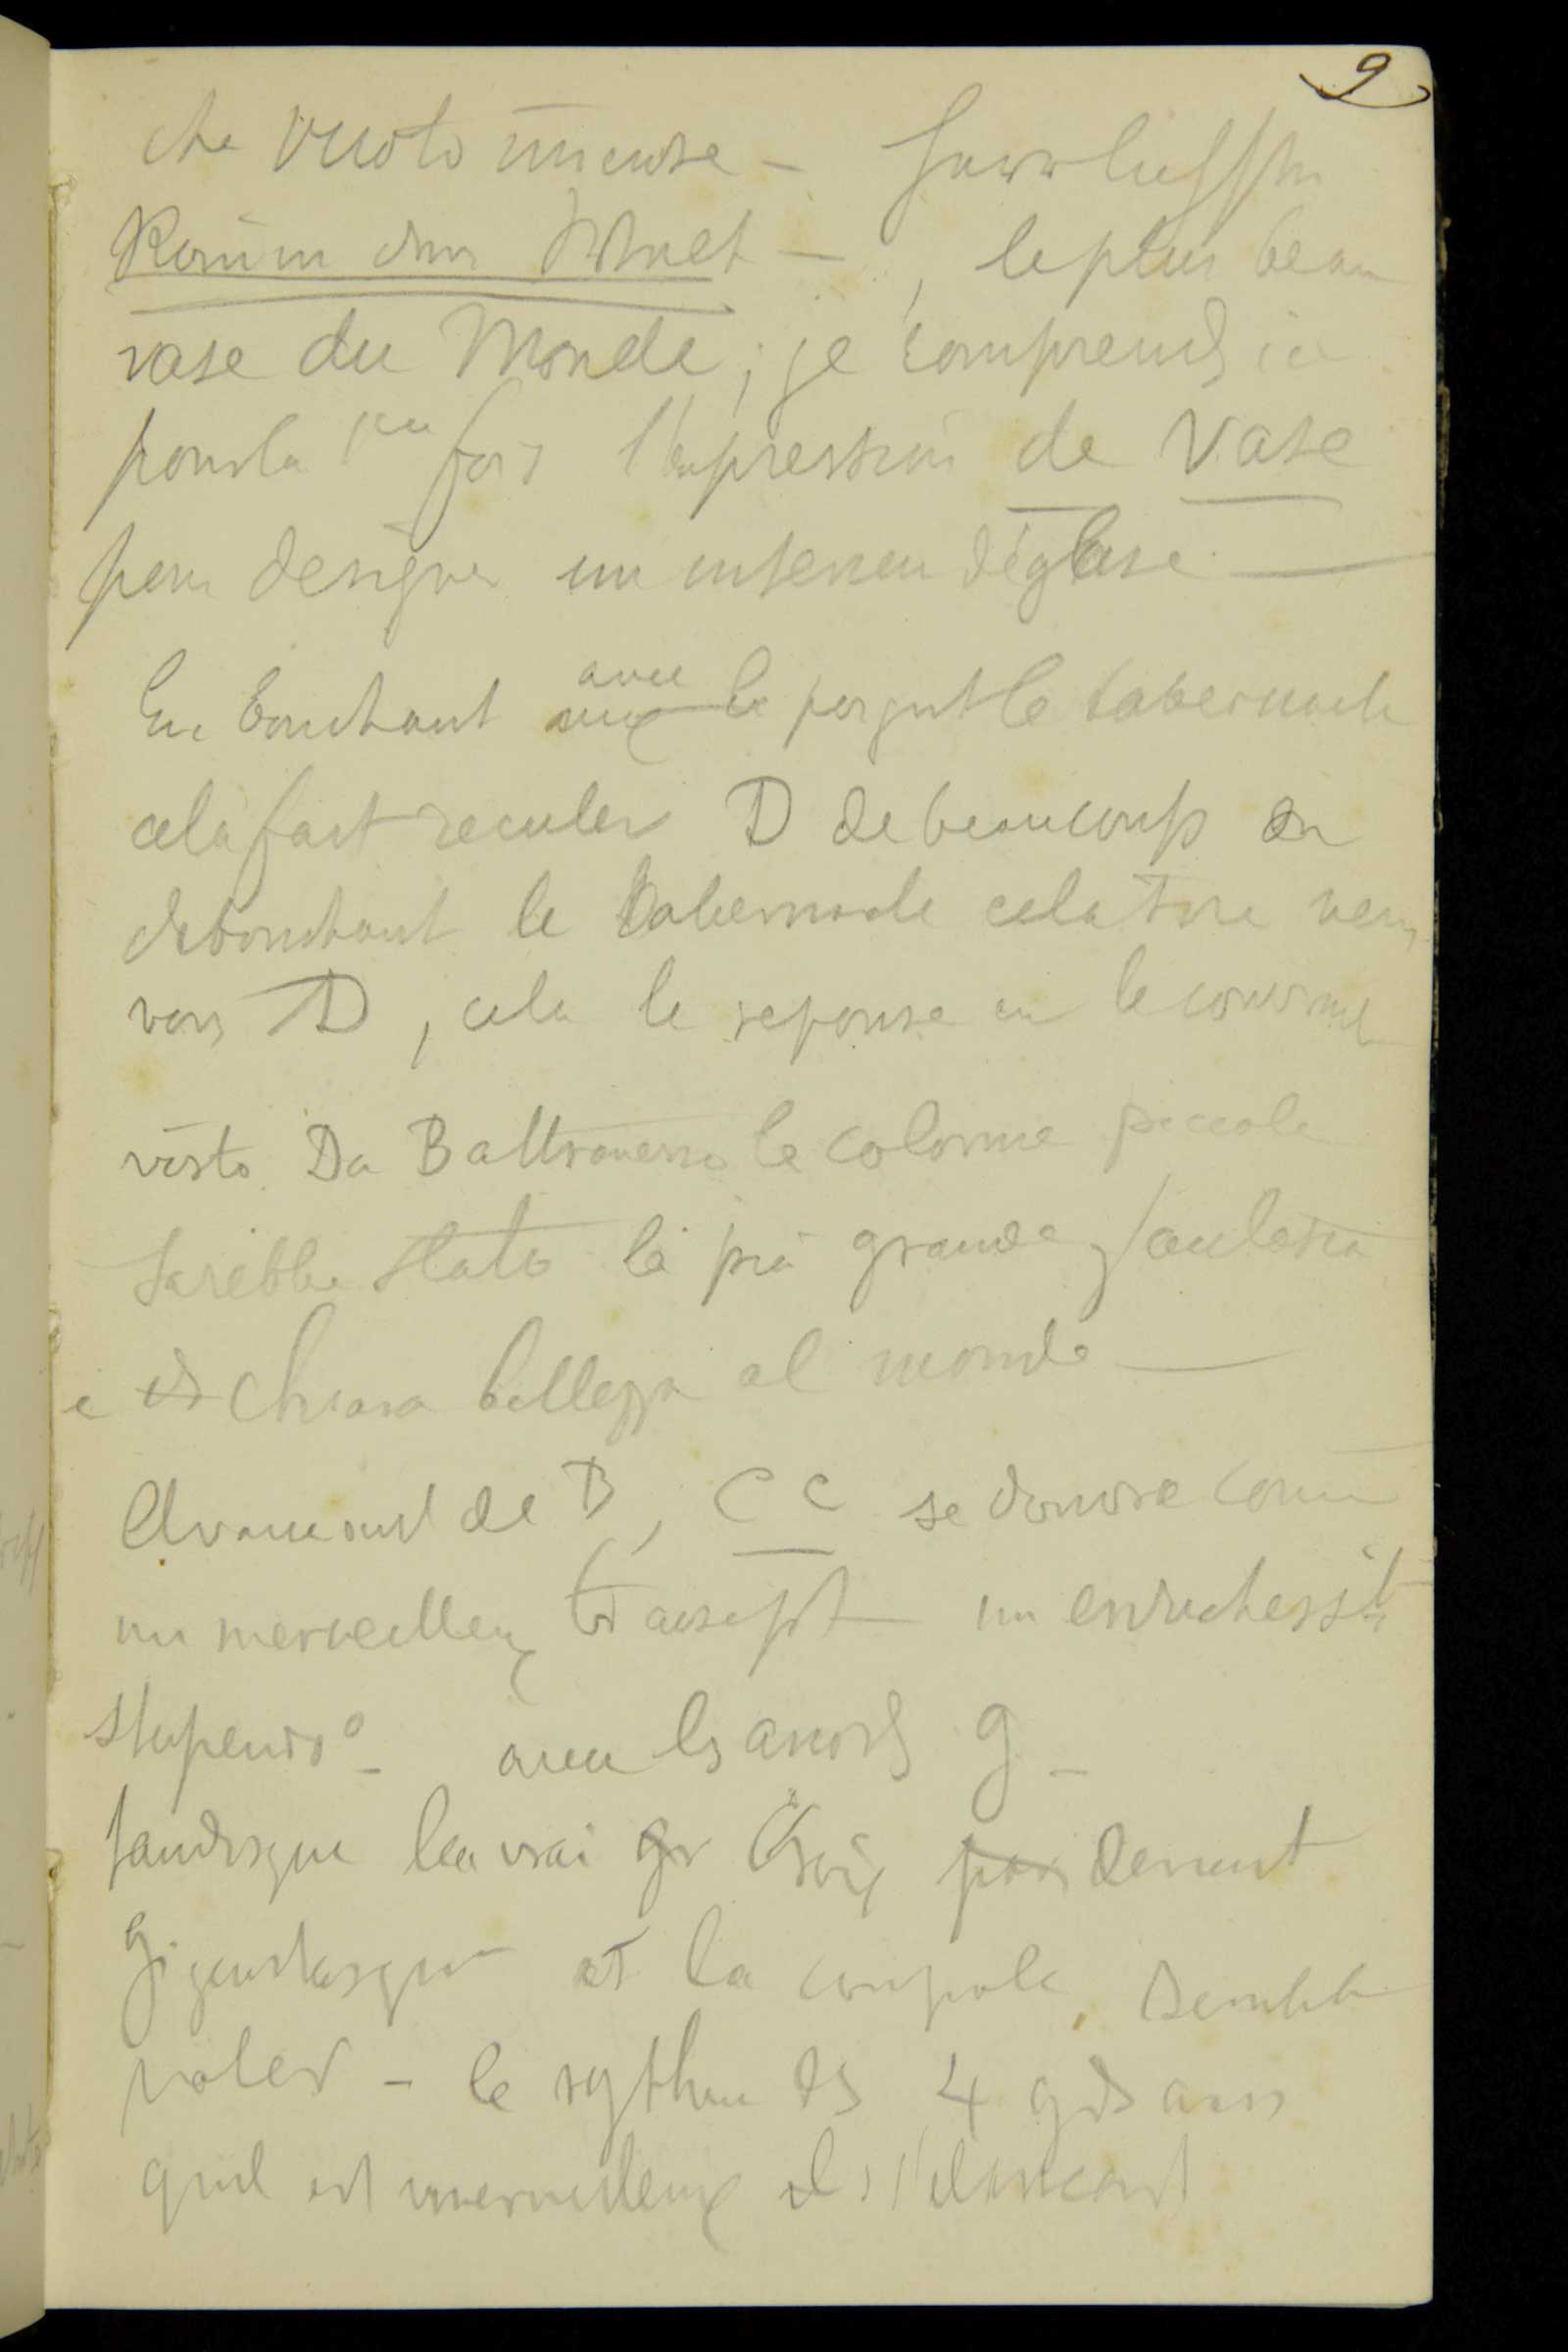 9
che vuoto immense – herrlichster
Raum der Welt – , le plus beau
vase du Monde ; je comprends ici
pour la 1re fois l'expression de vase
pour designer un interieur d'église —
En bouchant avec le le tabernacle
cela fait reculer D de beaucoup en
debouchant le tabernacle cela tire vers
vous D , cela le repousse en le couvrant
visto Da B attraverso le colonne piccole
sarebbe stato la più grande fantasia
e di chiara bellezza al mondo —
Avancant de B, C C se donne comme
un merveilleux transept un enrichess.t
stupendo – avec les arcs g –
tandisque la vrai gr Croix par devient
gigantesque et la coupole semble
voler – le rythme des 4 gds arcs
quel est merveilleux et s'élancant